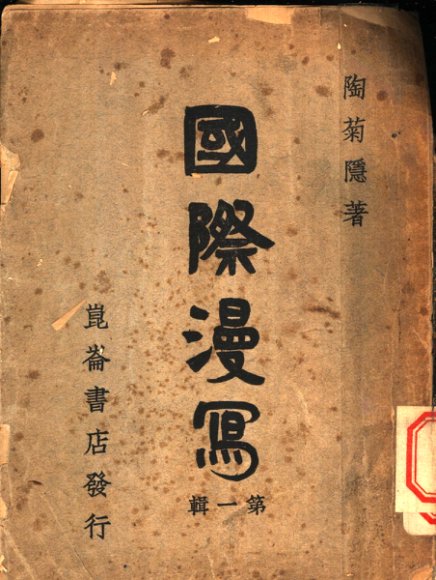 陶菊隱著
國際漫寫
第一輯
崑崙書店發行